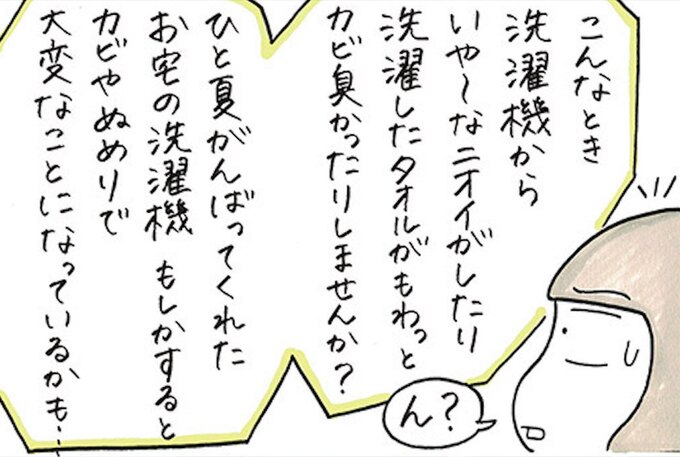 こんなとき
洗濯機から
いや〜なニオイがしたり
洗濯したタオルがもわっと
カビ臭かったりしませんか？
ひと夏がんばってくれた
お宅の洗濯機 もしかすると
カビやぬめりで
大変なことになっているかも…
ん？